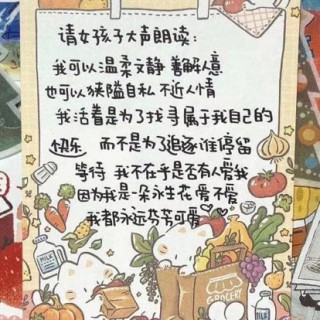 请女孩子大声朗读:
我可以温柔文静 善解人意
也可以狭隘自私 不近人情
我活着是为了找寻属于我自己的
快乐 而不是为了追逐谁停留
等待 我不在乎是否有人爱我
因为我是一朵永生花 爱不爱
我都永远芬芳可爱
MILK
GROCERY